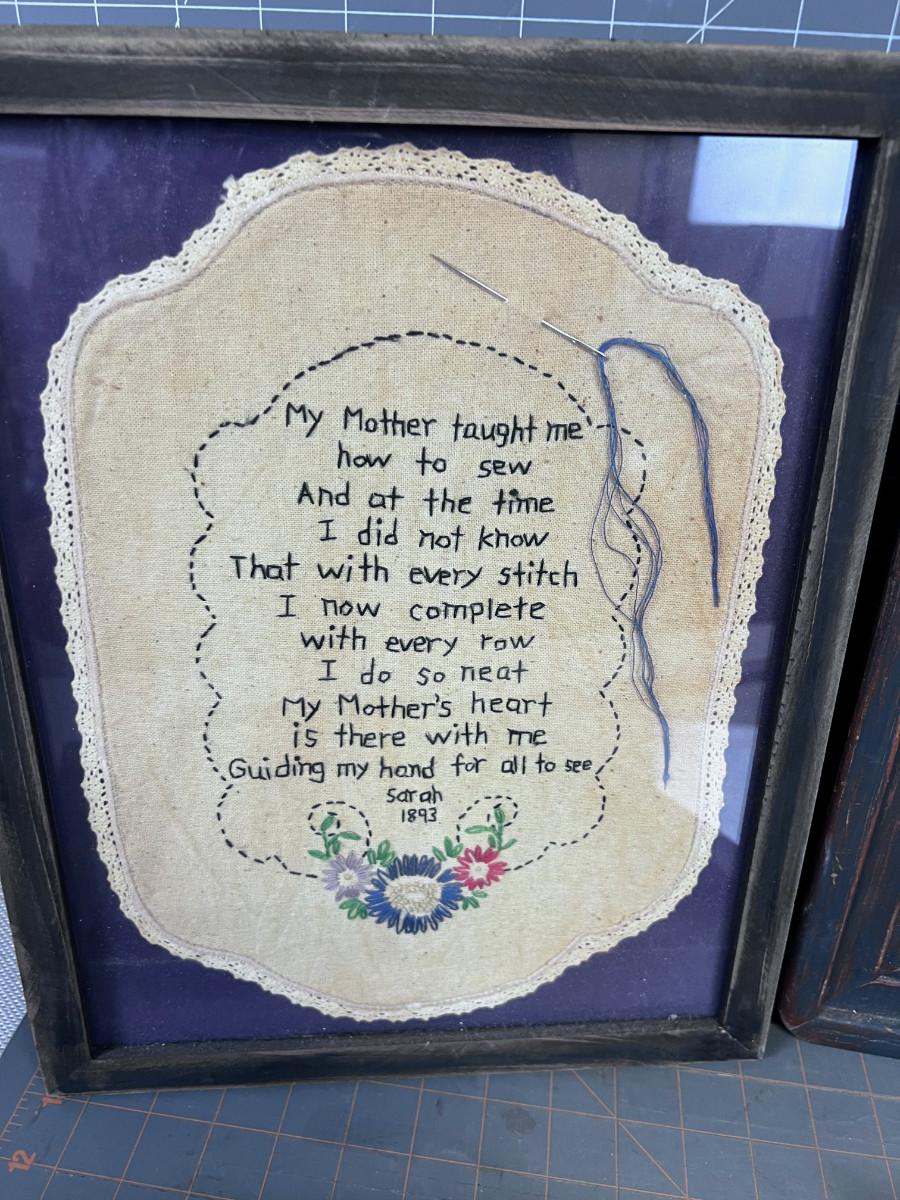 My Mother taught me
how to sew
And at the time
I did not know
That with every stitch
I now complete
with every row
I do so neat
My Mother's heart
is there with me
Guiding my hand for all to see
Sarah
1893
12